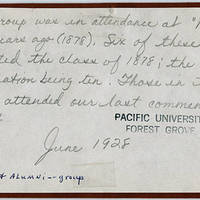 group was in attendance at "
ears ago (1878). Six of these
ted the class of 1878; the
ation being ten. Those in
attended our last commen
PACIFIC UNIVERSIT
FOREST GROVE
June 1928
ALUMNI -- group